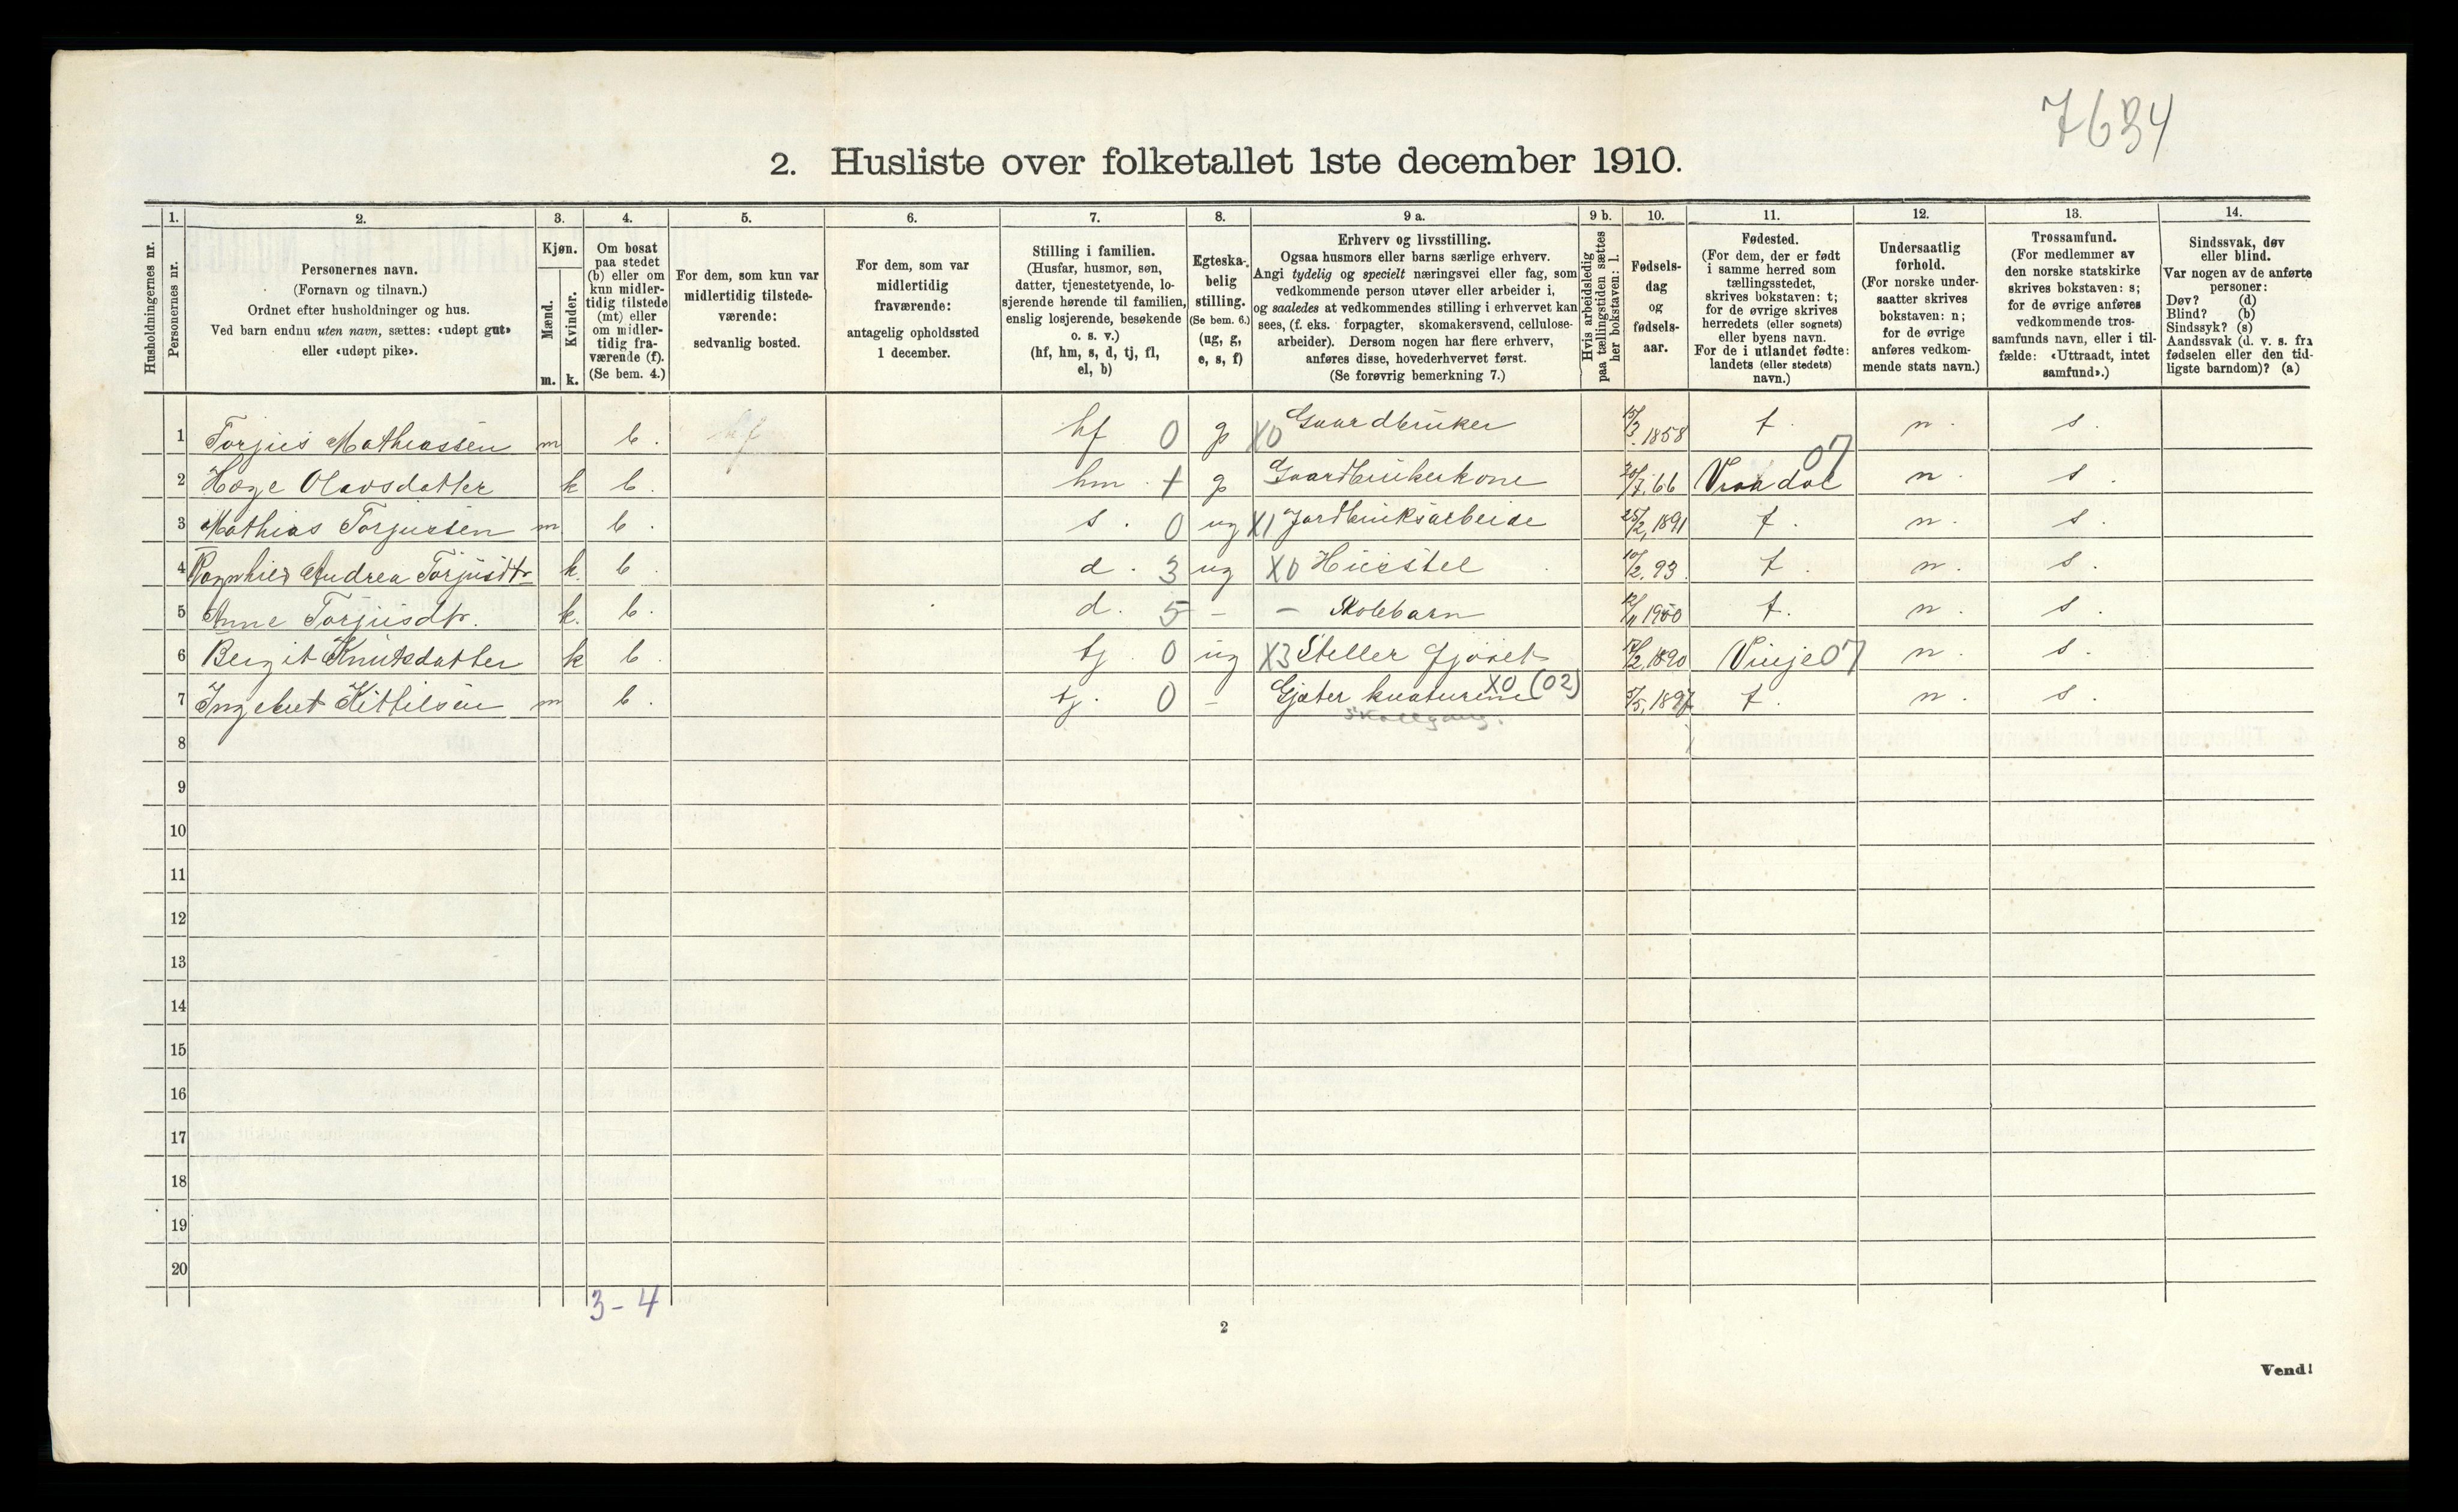 7634
2. Husliste over folketallet 1ste december 1910.
Husholdningernes nr.
1. Personernes nr.
2. Personernes navn.
(Fornavn og tilnavn.)
Ordnet efter husholdninger og hus.
Ved barn endnu uten navn, sættes: «udøpt gut»
eller «udøpt pike».
3. Kjøn.
Mænd. m.
Kvinder. k.
4. Om bosat
paa stedet
(b) eller om
kun midler-
tidig tilstede
(mt) eller
om midler-
tidig fra-
værende (f).
(Se bem. 4.)
5. For dem, som kun var
midlertidig tilstede-
værende:
sedvanlig bosted.
6. For dem, som var
midlertidig
fraværende:
antagelig opholdssted
1 december.
7. Stilling i familien.
(Husfar, husmor, søn,
datter, tjenestetyende, lo-
sjerende hørende til familien,
enslig losjerende, besøkende
o. s. v.)
(hf, hm, s, d, tj, fl,
el, b)
8. Egteska-
belig
stilling.
(Se bem. 6.)
(ug, g,
e, s, f)
9 a. Erhverv og livsstilling.
Ogsaa husmors eller barns særlige erhverv.
Angi tydelig og specielt næringsvei eller fag, som
vedkommende person utøver eller arbeider i,
og saaledes at vedkommendes stilling i erhvervet kan
sees, (f. eks. forpagter, skomakersvend, cellulose-
arbeider). Dersom nogen har flere erhverv,
anføres disse, hovederhvervet først.
(Se forøvrig bemerkning 7.)
9 b. Hvis arbeidsledig
paa tællingstiden sættes
her bokstaven: l.
10. Fødsels-
dag
og
fødsels-
aar.
11. Fødested.
(For dem, der er født
i samme herred som
tællingsstedet,
skrives bokstaven: t;
for de øvrige skrives
herredets (eller sognets)
eller byens navn.
For de i utlandet fødte:
landets (eller stedets)
navn.)
12. Undersaatlig
forhold.
(For norske under-
saatter skrives
bokstaven: n;
for de øvrige
anføres vedkom-
mende stats navn.)
13. Trossamfund.
(For medlemmer av
den norske statskirke
skrives bokstaven: s;
for de øvrige anføres
vedkommende tros-
samfunds navn, eller i til-
fælde: «Uttraadt, intet
samfund».)
14. Sindssvak, døv
eller blind.
Var nogen av de anførte
personer:
Døv? (d)
Blind? (b)
Sindssyk? (s)
Aandssvak (d. v. s. fra
fødselen eller den tid-
ligste barndom)? (a)
1 Torjus Mathiassen m b. hf 0 g X0 Gaardbruker 15/3 1858 t. n. s.
2 Hæge Olavsdatter k b. hm. + g Gaardbrukerkone 20/7.66 Vraadal 07 n. s.
3 Mathias Torjussen m b. s. 0 ug X1 Jordbruksarbeide 25/2, 1891 t. n. s.
4 Ragnhild Andrea Torjusdtr k. b. d. 3 ug X0 Husstel 10/2. 93. t. n. s.
5 Anne Torjusdtr. k. b. d. 5 - - Skolebarn 12/11 1900 t. n. s.
6 Bergit Knutsdatter k b. tj. 0 ug X3 Steller fjøset 17/2, 1890 Vinje 07 n. s.
7 Ingebret Kittilsen m b. tj. 0 - Gjæter kreaturene X0 (02) 5/5, 1897 t. n. s.
Skolegang.
8
9
10
11
12
13
14
15
16
17
18
19
20
3-4
2
Vend!